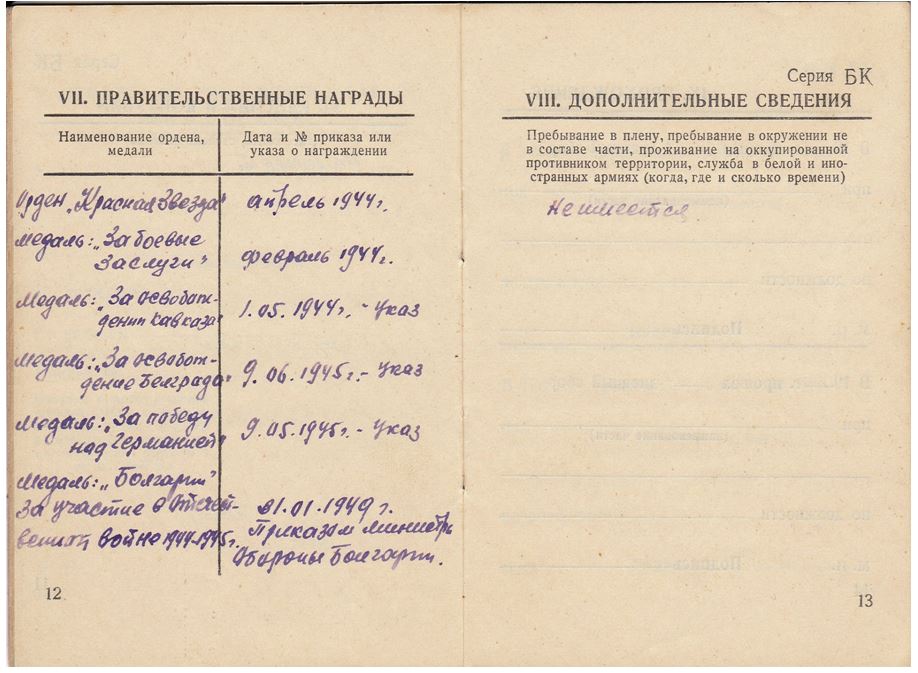 VII. ПРАВИТЕЛЬСТВЕННЫЕ НАГРАДЫ
Наименование ордена,
медали
Дата и № приказа или
указа о награждении
Орден „Красная Звезда"
апрель 1944 г.
Медаль: „За боевые
заслуги"
февраль 1944 г.
Медаль: „За освобож-
дении Кавказа"
1.05.1944 г. - Указ
Медаль: „За освобож-
дение Белграда"
9.06.1945 г. - Указ
Медаль: „За победу
над Германией"
9.05.1945 г. - Указ
Медаль: „Болгарии"
За участие в Отечест-
войне 1944-1945 г.
31.01.1949 г.
Приказом министр
Обороны Болгарии.
12
Серия БК
VIII. ДОПОЛНИТЕЛЬНЫЕ СВЕДЕНИЯ
Пребывание в плену, пребывание в окружении не
в составе части, проживание на оккупированной
противником территории, служба в белой и ино-
странных армиях (когда, где и сколько времени)
Не имеется
13